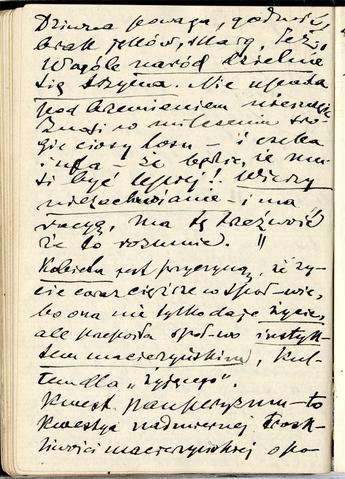 Dziwna powaga, godność,
brak jęków, skarg, łez.
Wogóle naród dzielnie
się trzyma. Nie upada
pod brzemieniem nieszczęść
Znosi w milczeniu sro-
gie ciosy losu – i czeka
i ufa – że będzie, że mu-
si być lepiej! Wierzy
niezachwianie – i ma
rację, ma tę trzeźwość
że to rozumie. ||
Kobieta jest przyczyną, że ży-
cie coraz cięższe w społ-wie,
bo ona nie tylko daje życie,
ale przepaja społ-wo instynk-
tem macierzyńskim, kul-
tem dla „żyjącego".
Kwest. pauperyzmu – to
kwestya nadmiernej trosk-
liwości macierzyńskiej o po-